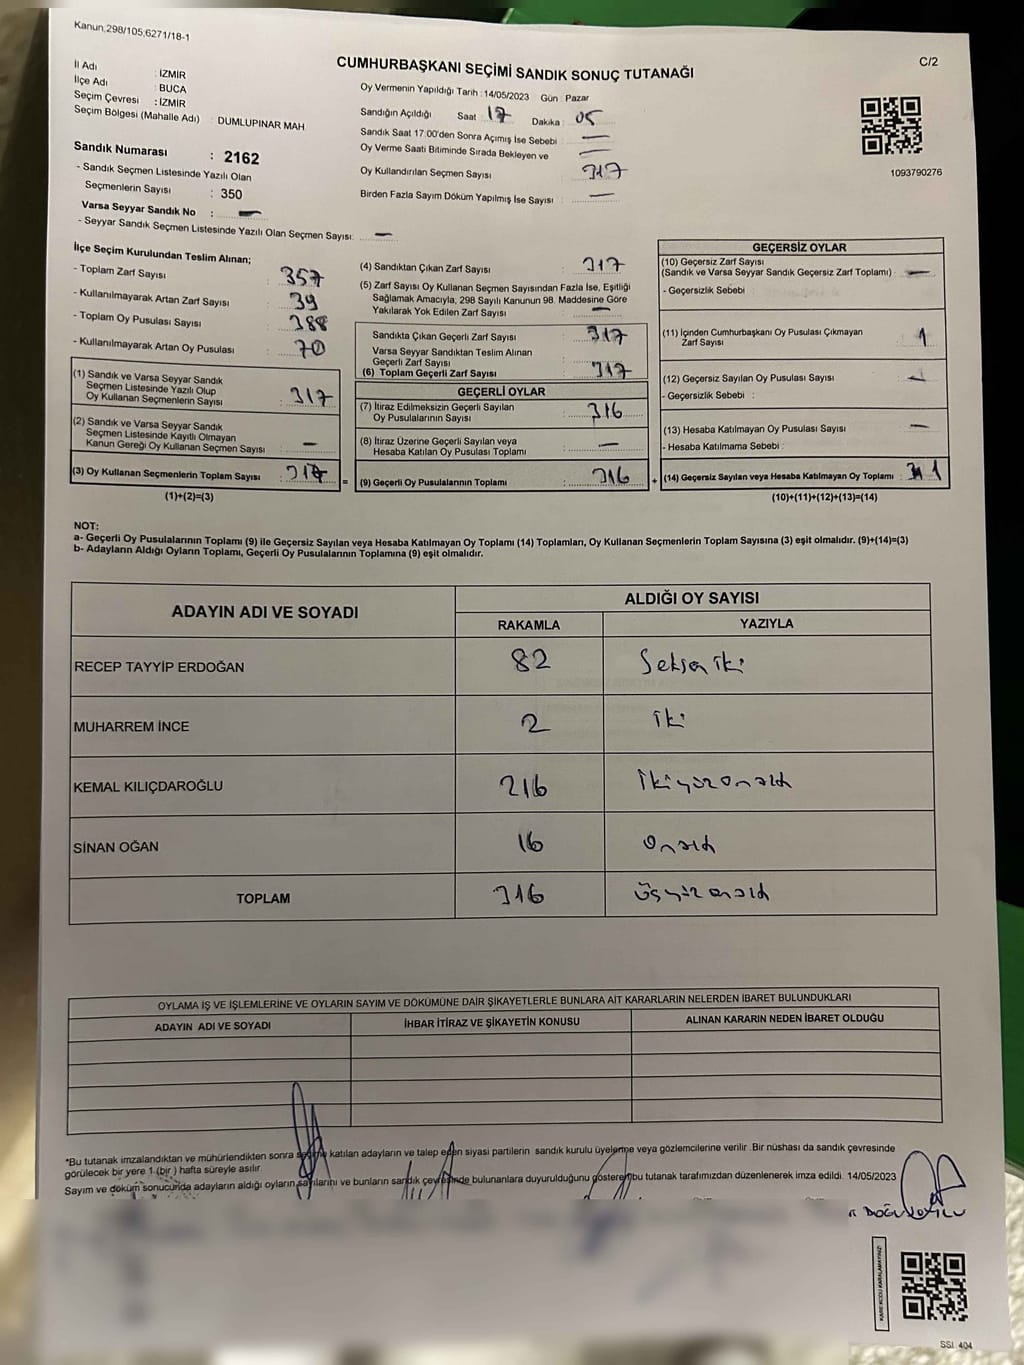 Kanun,298/105,6271/18-1
C/2
CUMHURBAŞKANI SEÇİMİ SANDIK SONUÇ TUTANAĞI
İl Adı : İZMİR
İlçe Adı : BUCA
Seçim Çevresi : İZMİR
Seçim Bölgesi (Mahalle Adı) : DUMLUPINAR MAH.
Sandık Numarası : 2162
- Sandık Seçmen Listesinde Yazılı Olan
Seçmenlerin Sayısı : 350
Varsa Seyyar Sandık No : —
- Seyyar Sandık Seçmen Listesinde Yazılı Olan Seçmen Sayısı: —
Oy Vermenin Yapıldığı Tarih : 14/05/2023 Gün : Pazar
Sandığın Açıldığı Saat : 17 Dakika : 05
Sandık Saat 17.00'den Sonra Açımış İse Sebebi : —
Oy Verme Saati Bitiminde Sırada Bekleyen ve : —
Oy Kullandırılan Seçmen Sayısı : 317
Birden Fazla Sayım Döküm Yapılmış İse Sayısı : —
1093790276
İlçe Seçim Kurulundan Teslim Alınan;
- Toplam Zarf Sayısı : 357
- Kullanılmayarak Artan Zarf Sayısı : 39
- Toplam Oy Pusulası Sayısı : 388
- Kullanılmayarak Artan Oy Pusulası : 70
(1) Sandık ve Varsa Seyyar Sandık
Seçmen Listesinde Yazılı Olup
Oy Kullanan Seçmenlerin Sayısı : 317
(2) Sandık ve Varsa Seyyar Sandık
Seçmen Listesinde Kayıtlı Olmayan
Kanun Gereği Oy Kullanan Seçmen Sayısı : —
(3) Oy Kullanan Seçmenlerin Toplam Sayısı : 317 =
(1)+(2)=(3)
(4) Sandıktan Çıkan Zarf Sayısı : 317
(5) Zarf Sayısı Oy Kullanan Seçmen Sayısından Fazla İse, Eşitliği
Sağlamak Amacıyla, 298 Sayılı Kanunun 98. Maddesine Göre
Yakılarak Yok Edilen Zarf Sayısı : —
Sandıkta Çıkan Geçerli Zarf Sayısı : 317
Varsa Seyyar Sandıktan Teslim Alınan
Geçerli Zarf Sayısı
(6) Toplam Geçerli Zarf Sayısı : 317
GEÇERLİ OYLAR
(7) İtiraz Edilmeksizin Geçerli Sayılan
Oy Pusulalarının Sayısı : 316
(8) İtiraz Üzerine Geçerli Sayılan veya
Hesaba Katılan Oy Pusulası Toplamı : —
(9) Geçerli Oy Pusulalarının Toplamı : 316 +
GEÇERSİZ OYLAR
(10) Geçersiz Zarf Sayısı
(Sandık ve Varsa Seyyar Sandık Geçersiz Zarf Toplamı) : —
- Geçersizlik Sebebi :
(11) İçinden Cumhurbaşkanı Oy Pusulası Çıkmayan
Zarf Sayısı : 1
(12) Geçersiz Sayılan Oy Pusulası Sayısı : —
- Geçersizlik Sebebi :
(13) Hesaba Katılmayan Oy Pusulası Sayısı : —
- Hesaba Katılmama Sebebi :
(14) Geçersiz Sayılan veya Hesaba Katılmayan Oy Toplamı : 1
(10)+(11)+(12)+(13)=(14)
NOT:
a- Geçerli Oy Pusulalarının Toplamı (9) ile Geçersiz Sayılan veya Hesaba Katılmayan Oy Toplamı (14) Toplamları, Oy Kullanan Seçmenlerin Toplam Sayısına (3) eşit olmalıdır. (9)+(14)=(3)
b- Adayların Aldığı Oyların Toplamı, Geçerli Oy Pusulalarının Toplamına (9) eşit olmalıdır.
ADAYIN ADI VE SOYADI ALDIĞI OY SAYISI
RAKAMLA YAZIYLA
RECEP TAYYİP ERDOĞAN 82 Seksen iki
MUHARREM İNCE 2 iki
KEMAL KILIÇDAROĞLU 216 ikiyüzonaltı
SİNAN OĞAN 16 onaltı
TOPLAM 316 üçyüzonaltı
OYLAMA İŞ VE İŞLEMLERİNE VE OYLARIN SAYIM VE DÖKÜMÜNE DAİR ŞİKAYETLERLE BUNLARA AİT KARARLARIN NELERDEN İBARET BULUNDUKLARI
ADAYIN ADI VE SOYADI İHBAR İTİRAZ VE ŞİKAYETİN KONUSU ALINAN KARARIN NEDEN İBARET OLDUĞU
*Bu tutanak imzalandıktan ve mühürlendikten sonra seçime katılan adayların ve talep eden siyasi partilerin sandık kurulu üyelerine veya gözlemcilerine verilir. Bir nüshası da sandık çevresinde
görülecek bir yere 1 (bir) hafta süreyle asılır.
Sayım ve döküm sonucunda adayların aldığı oyların sayılarını ve bunların sandık çevresinde bulunanlara duyurulduğunu gösteren bu tutanak tarafımızdan düzenlenerek imza edildi. 14/05/2023
KARE KODU KARALAMAYINIZ!
SSI: 404